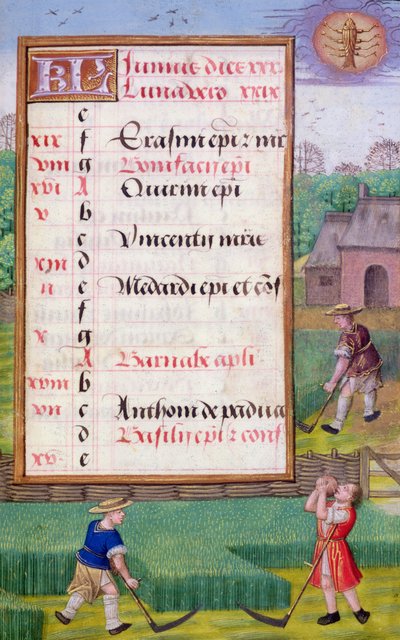 KL Junius dies xxx
Luna vero xxix
e
xix f Erasmi epi z mr
viii g Bonifacij epi
xvi A Quirini epi
v b
c Vincentij mris
xiii d
ii e Medardi epi et cōf
f
x g
A Barnabe apli
xviii b
vii c Anthoni de padua
d Basilij epi z conf
xv e